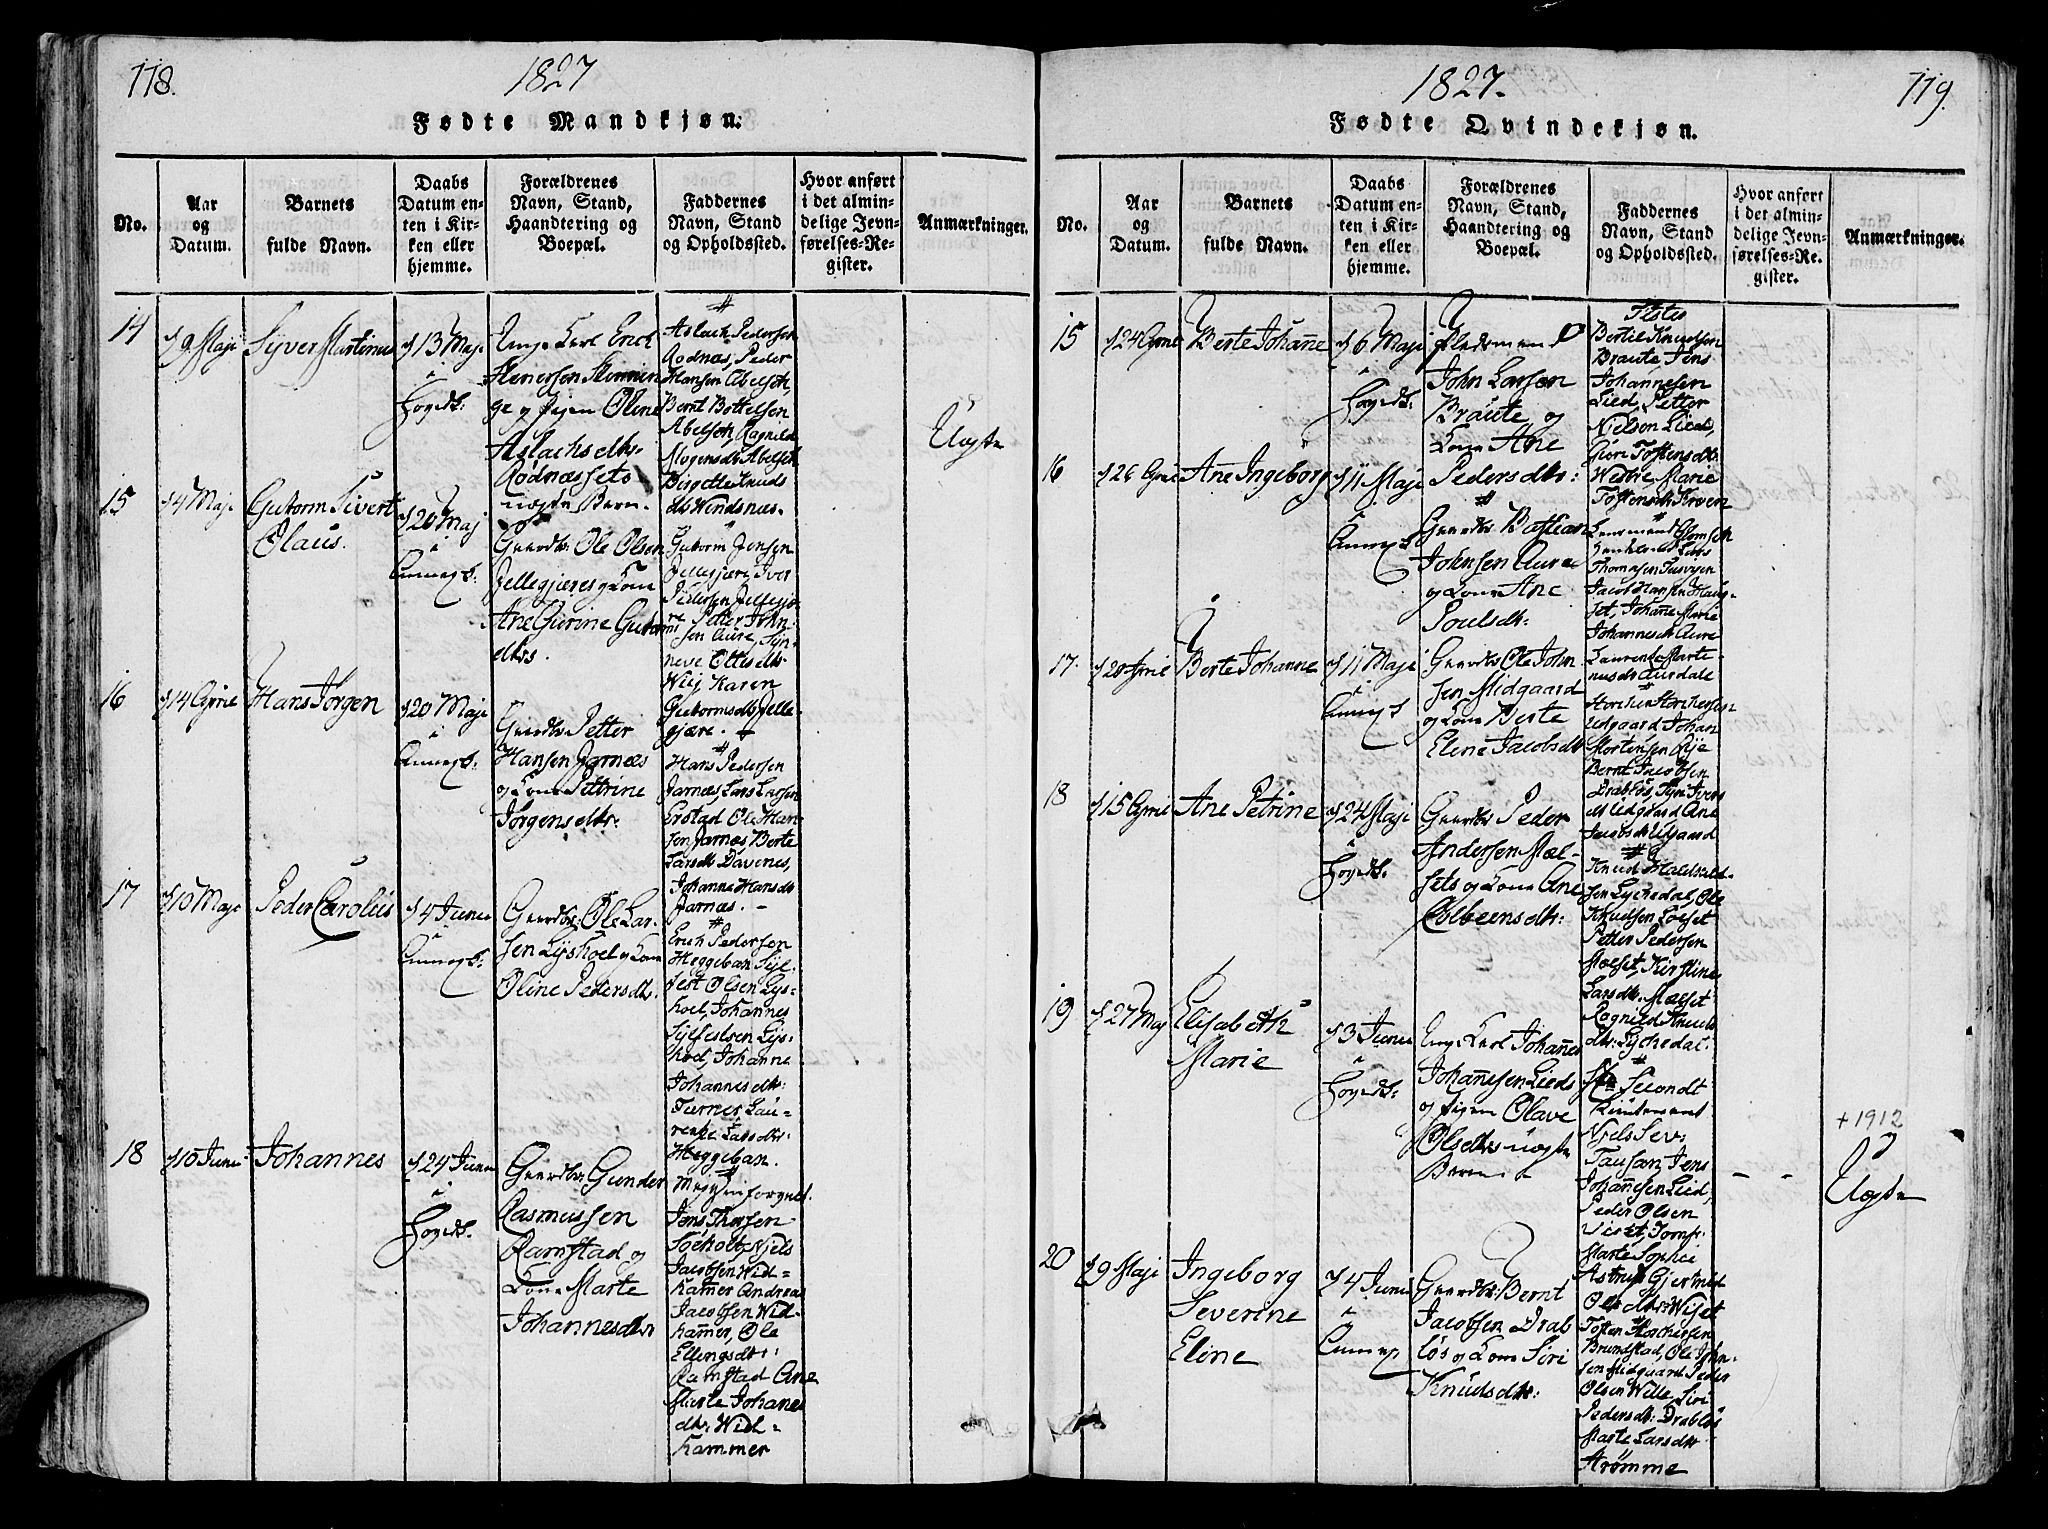 118.
1827
Fødte Mandkjøn.
No.
Aar
og
Datum.
Barnets
fulde Navn.
Daabs
Datum en-
ten i Kir-
ken eller
hjemme.
Forældrenes
Navn, Stand,
Haandtering og
Boepæl.
Faddernes
Navn, Stand
og Opholdssted.
Hvor anført
i det almin-
delige Jevn-
førelses-Re-
gister.
Anmærkninger.
14
9 Maji
Syver Martinus
13 Maj
i
Hoveds:
Unge Karl Erich
og Pigen Oline
Aslachsdtr
Rødnæssets
uægte Barn
Aslach Pedersen
Rødnæs, Peder
Hansen Abelseth,
Bernt Bottelsen
Abelseth, Ragnild
Mogensdt Abelseth
Birgitte Knuds
dt Windsnæs.
Uægte
15
4 Maj
Guttorm Sivert
Olaus.
20 Maj
i
Annexk:
Gaardbr: Ole Olsen
Jellegjeres og Kone
Ane Gurine Guttorms
dtrs.
Guttorm Jensen
Jellegjere, Iver
Pedersen Jellegje
re Petter John
sen Aure, Syn
neve Ottesdtr
Wiij Karen
Guttormsdt Jelle
gjære.
16
14 April
Hans Jørgen
20 Maji
i
Annexk:
Gaardbr Petter
Hansen Jarnæs
og Kone Pettrine
Jørgensdtr:
Hans Pedersen
Jarnæs Lars Larsen
Erstad Ole Han
sen Jarnæs Berte
Larsdt Davenes,
Johanne Hansdt
Jarnæs.
17
10 Maji
Peder Carolus
4 Junii
i
Annexk:
Gaardbr: Ole Lar-
sen Lyshoel og Kone
Oline Pedersdtr.
Erich Pedersen
Heggeban Syl-
fest Olsen Lys-
hoel, Johannes
Sylfestsen Lys-
hoel, Johanne
Johannesdtr:
Turner Lau-
rense Larsdtr:
Heggeban.
18
10 Junii
Johannes
24 Junii
i
Hoveds.
Gaardbr: Gunder
Rasmussen
Ramstad og
Kone Marte
Johannesdtr
Jens Thorsen
Søeholt, Njels
Jacobsen Wid-
kamer Andreas
Jacobsen Wid-
kamer, Ole
Ellingsdtr:
Ramstad Ane
Marte Johanes
dtr: Wid-
kammer
1827.
119.
Fødte Qvindekjøn.
No.
Aar
og
Datum.
Barnets
fulde Navn.
Daabs
Datum en-
ten i Kir-
ken eller
hjemme.
Forældrenes
Navn, Stand,
Haandtering og
Boepæl.
Faddernes
Navn, Stand
og Opholdssted.
Hvor anført
i det almin-
delige Jevn-
førelses-Re-
gister.
Anmærkninger.
15
24 April
Berte Johañe
6 Maji
i
Hoveds:
John Larsen
Braute og
Kone Ane
Pedersdtr:
Bertil Knudsen
Braute, Jens
Johannesen
Lied, Petter
Nielsen Lied,
Giøri Tostensdt:
Westre, Marie
16
26 April
Añe Ingeborg
11 Maji
i
Annexk
Gaardbr Bastian
Johnsen Aure
og Kone Ane
Poulsdtr:
Jacob Hansen
Johañe Marie
Johannesdt Aure
17.
20 April
Berte Johanne
11 Maji
i
Annexk
Gaardbr Ole John
sen Midgaard
og Kone Berte
Eline Jacobsdtr
Udgaard Johan
Mortensen Øije
Bernt Jacobsen
Drabløs,
dt Udgaard Ane
Jacobsdt Udgaard
18
15 April
Ane Petrine
24 Maji
i
Hoveds:
Gaardbr Peder
Andersen Mæl-
sets og Kone Ane
Colbeensdtr:
sen Lychedal, Ole
Knudsen
Petter Pedersen
Melset, Kirstine
Larsdtr. Melset
Ragnild Knuds
dtr: Lychedal:
19
27 Maj
Elisabeth
Marie
3 Junii
i
Hoveds:
Ung Karl Johañes
Johañesen Lieds
og Pigen Olave
Olsdtrs uægte
Barn
Secondt
Lieutenant
Njels Sev:
Tausan, Jens
Johañesen Lied,
Peder Olsen
Viset, Jomf:
Marte Sophie
Astrup, Gjertrud
Ols dtr: Wiset
+ 1912
Uægte
20
9 Maji
Ingeborg
Severine
Eline
4 Junii
i
Annex
Gaardbr: Bernt
Jacobsen Drab
løs og Kone Siri
Knudsdtr:
Tosten Storchersen
Brunstad, Ole John-
sen Midgaard Peder
Olsen Wille, Siri
Pedersdt: Drabløs
Marte Larsdtr
Strømme